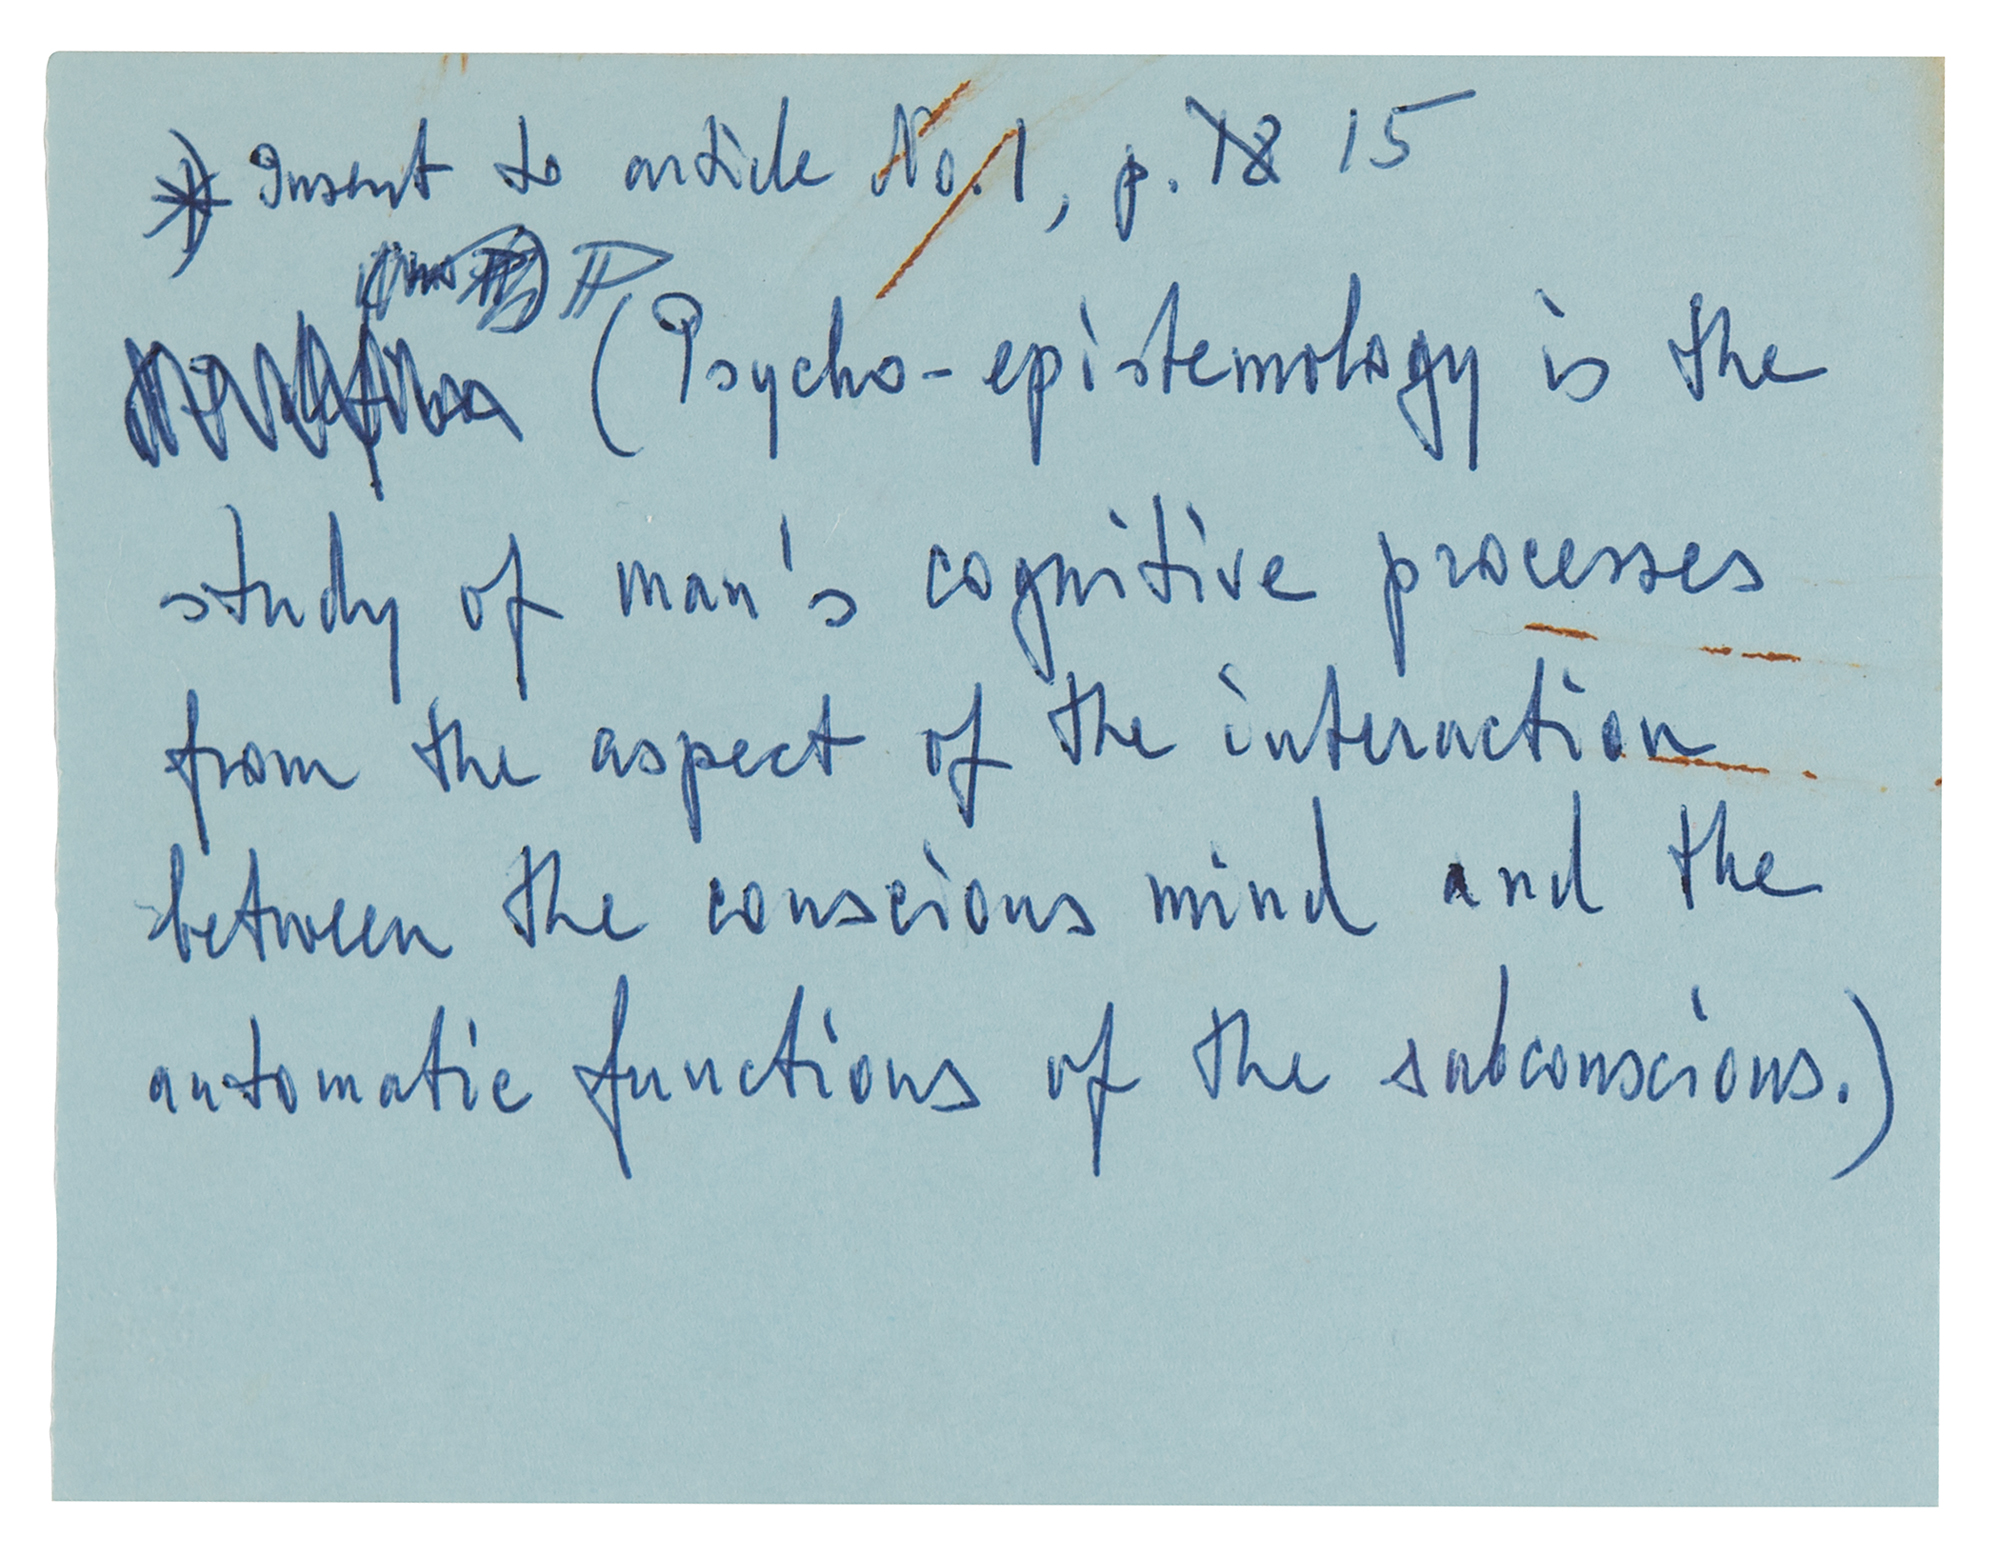 *) Insert to article No. 1, p. 18 15
(Psycho-epistemology is the
study of man's cognitive processes
from the aspect of the interaction
between the conscious mind and the
automatic functions of the subconscious.)